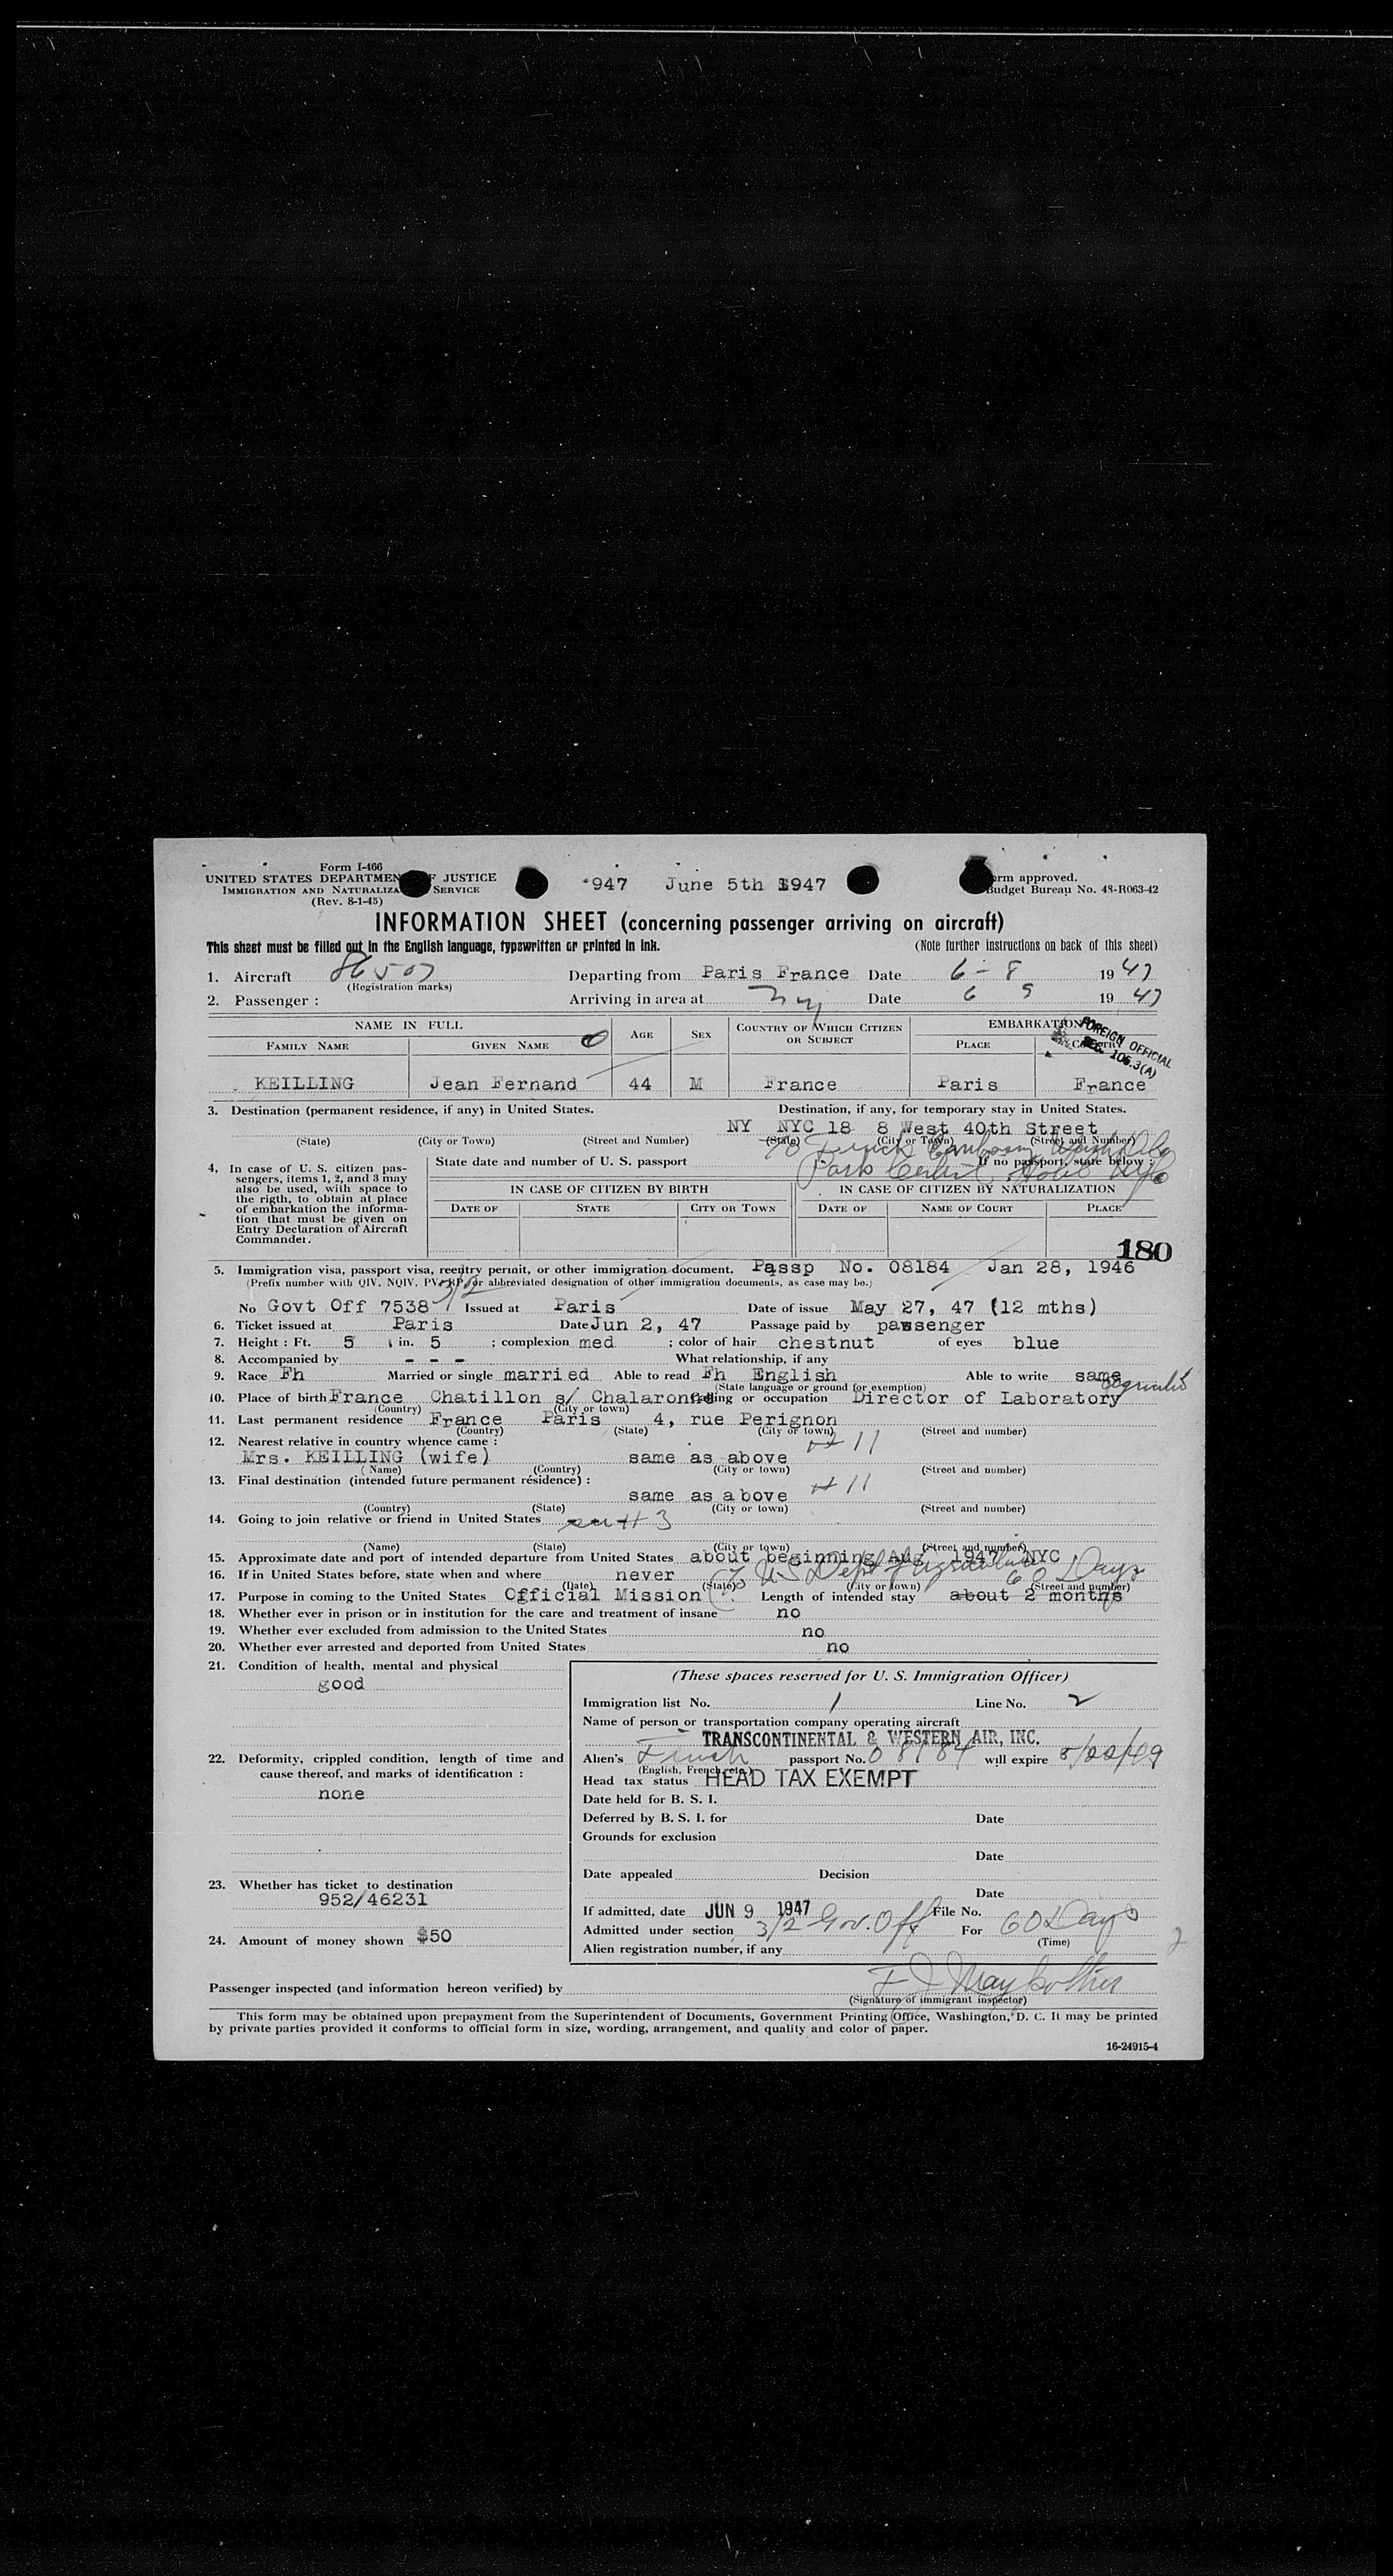 Form I-466
UNITED STATES DEPARTMEN F JUSTICE
IMMIGRATION AND NATURALIZA SERVICE
(Rev. 8-1-45)
947 June 5th 1947
orm approved.
Budget Bureau No. 48-R063-42
INFORMATION SHEET (concerning passenger arriving on aircraft)
This sheet must be filled out in the English language, typewritten or printed in ink. (Note further instructions on back of this sheet)
1. Aircraft 86507 Departing from Paris France Date 6-8 1947
(Registration marks)
2. Passenger : Arriving in area at NY Date 6 9 1947
NAME IN FULL AGE SEX COUNTRY OF WHICH CITIZEN OR SUBJECT EMBARKATION
FAMILY NAME GIVEN NAME PLACE COUNTRY
FOREIGN OFFICIAL
SEC. 106.3(A)
KEILLING Jean Fernand 44 M France Paris France
3. Destination (permanent residence, if any) in United States. Destination, if any, for temporary stay in United States.
NY NYC 18 8 West 40th Street
(State) (City or Town) (Street and Number) (State) (City or Town) (Street and Number)
% French Embassy Wash DC
Park Central Hotel NYC
4. In case of U. S. citizen passengers, items 1, 2, and 3 may also be used, with space to the rigth, to obtain at place of embarkation the information that must be given on Entry Declaration of Aircraft Commander.
State date and number of U. S. passport If no passport, state below :
IN CASE OF CITIZEN BY BIRTH IN CASE OF CITIZEN BY NATURALIZATION
DATE OF STATE CITY OR TOWN DATE OF NAME OF COURT PLACE
180
5. Immigration visa, passport visa, reentry permit, or other immigration document. Passp No. 08184 Jan 28, 1946
(Prefix number with QIV, NQIV, PV, RP, or abbreviated designation of other immigration documents, as case may be.)
3/2
No Govt Off 7538 Issued at Paris Date of issue May 27, 47 (12 mths)
6. Ticket issued at Paris Date Jun 2, 47 Passage paid by passenger
7. Height : Ft. 5 in. 5 ; complexion med ; color of hair chestnut of eyes blue
8. Accompanied by - - - What relationship, if any
9. Race Fh Married or single married Able to read Fh English Able to write same
(State language or ground for exemption)
10. Place of birth France Chatillon s/ Chalaronne Calling or occupation Director of Laboratory
(Country) (City or town)
11. Last permanent residence France Paris 4, rue Perignon
(Country) (State) (City or town) (Street and number)
12. Nearest relative in country whence came :
Mrs. KEILLING (wife) same as above # 11
(Name) (Country) (City or town) (Street and number)
13. Final destination (intended future permanent résidence) :
same as above # 11
(Country) (State) (City or town) (Street and number)
14. Going to join relative or friend in United States see # 3
(Name) (State) (City or town) (Street and number)
15. Approximate date and port of intended departure from United States about beginning Aug 1947 NYC
16. If in United States before, state when and where never
(Date) (State) (City or town) (Street and number)
US Dept Agriculture 60 Days
17. Purpose in coming to the United States Official Mission Length of intended stay about 2 months
18. Whether ever in prison or in institution for the care and treatment of insane no
19. Whether ever excluded from admission to the United States no
20. Whether ever arrested and deported from United States no
21. Condition of health, mental and physical
good
22. Deformity, crippled condition, length of time and cause thereof, and marks of identification :
none
23. Whether has ticket to destination
952/46231
24. Amount of money shown $50
(These spaces reserved for U. S. Immigration Officer)
Immigration list No. 1 Line No. 2
Name of person or transportation company operating aircraft
TRANSCONTINENTAL & WESTERN AIR, INC.
Alien's French passport No. 08184 will expire 5/22/49
(English, French, etc.)
Head tax status HEAD TAX EXEMPT
Date held for B. S. I.
Deferred by B. S. I. for Date
Grounds for exclusion
Date
Date appealed Decision
Date
If admitted, date JUN 9 1947 File No.
Admitted under section 3/2 Gov. Off For 60 Days
(Time)
Alien registration number, if any
2
Passenger inspected (and information hereon verified) by
(Signature of immigrant inspector)
This form may be obtained upon prepayment from the Superintendent of Documents, Government Printing Office, Washington, D. C. It may be printed
by private parties provided it conforms to official form in size, wording, arrangement, and quality and color of paper.
16-24915-4